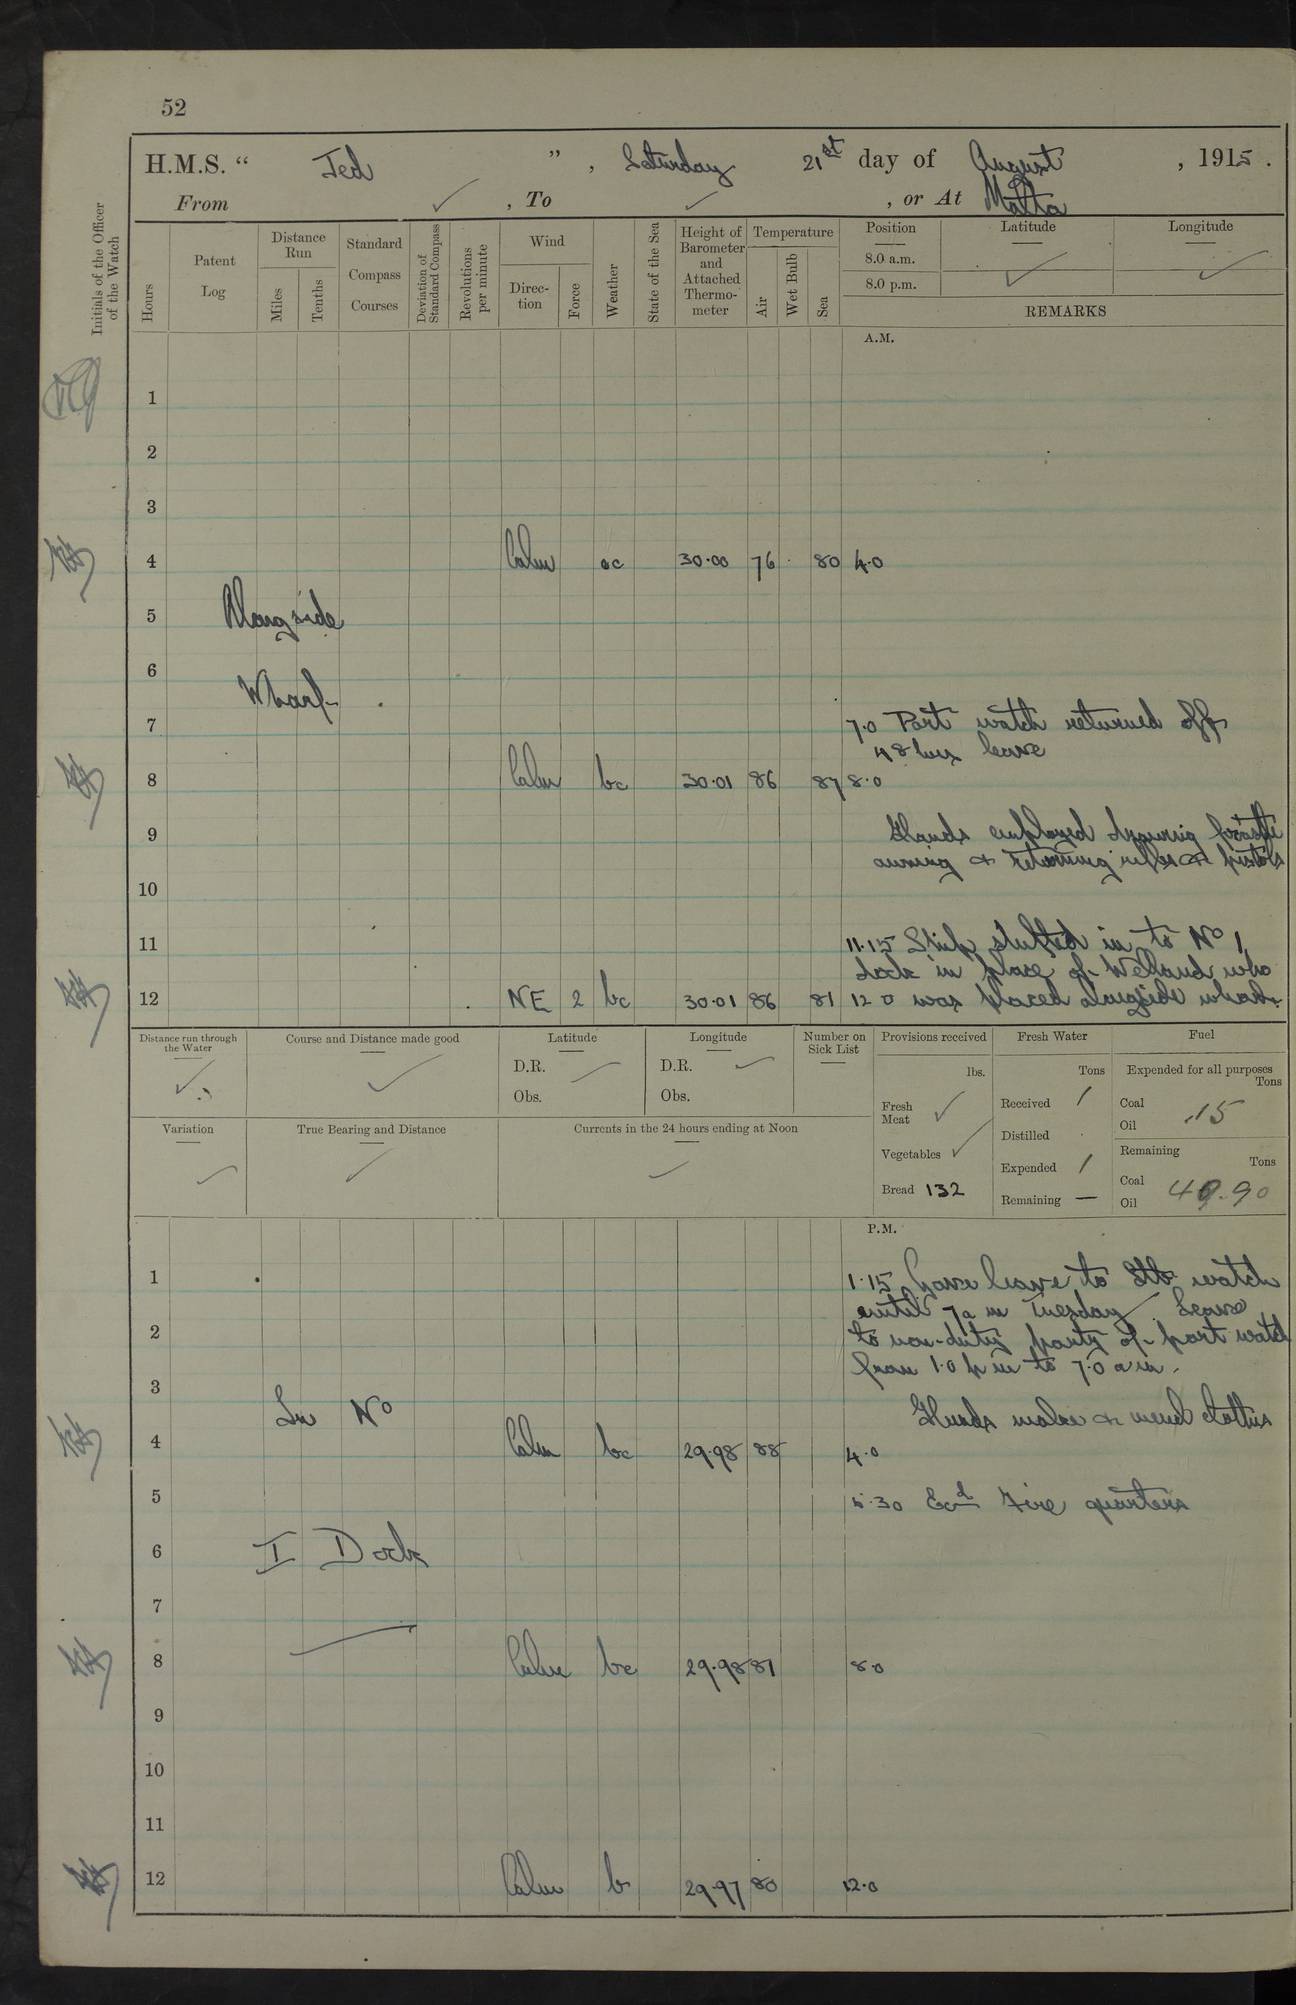 52
H.M.S. " Jed ", Saturday 21st day of August, 1915.
From ✓, To ✓, or At Malta
Initials of the Officer of the Watch
Hours
Patent Log
Distance Run
Miles
Tenths
Standard Compass Courses
Deviation of Standard Compass
Revolutions per minute
Wind
Direction
Force
Weather
State of the Sea
Height of Barometer and Attached Thermometer
Temperature
Air
Wet Bulb
Sea
Position
Latitude
Longitude
8.0 a.m.
8.0 p.m.
REMARKS
A.M.
1
2
3
4 Calm oc 30.00 76 80 4.0
5 Alongside
6
Wharf
7 7.0 Port watch returned off
48 hrs leave
8 Calm bc 30.01 86 87 8.0
9 Hands employed focastle
awning & returning rifles & pistols
10
11 11.15 Ship shifted in to No 1
dock in place of Welland who
12 NE 2 bc 30.01 86 81 12 0 was placed alongside wharf.
Distance run through the Water
Course and Distance made good
Latitude
D.R.
Obs.
Longitude
D.R.
Obs.
Number on Sick List
Provisions received
lbs.
Fresh Meat ✓
Vegetables ✓
Bread 132
Fresh Water
Tons
Received /
Distilled
Expended /
Remaining —
Fuel
Expended for all purposes
Tons
Coal
Oil .15
Remaining
Tons
Coal
Oil 49.90
Variation
True Bearing and Distance
Currents in the 24 hours ending at Noon
P.M.
1 1.15 Gave leave to Stb watch
until 7 a m Tuesday. Leave
2 to non-duty party of port watch
from 1.0 p m to 7.0 a m.
3 In No Hands make & mend clothes
4 Calm bc 29.98 88 4.0
5 5.30 Exd Fire quarters
6 I Dock
7
8 Calm bc 29.98 81 8.0
9
10
11
12 Calm b 29.97 80 12.0